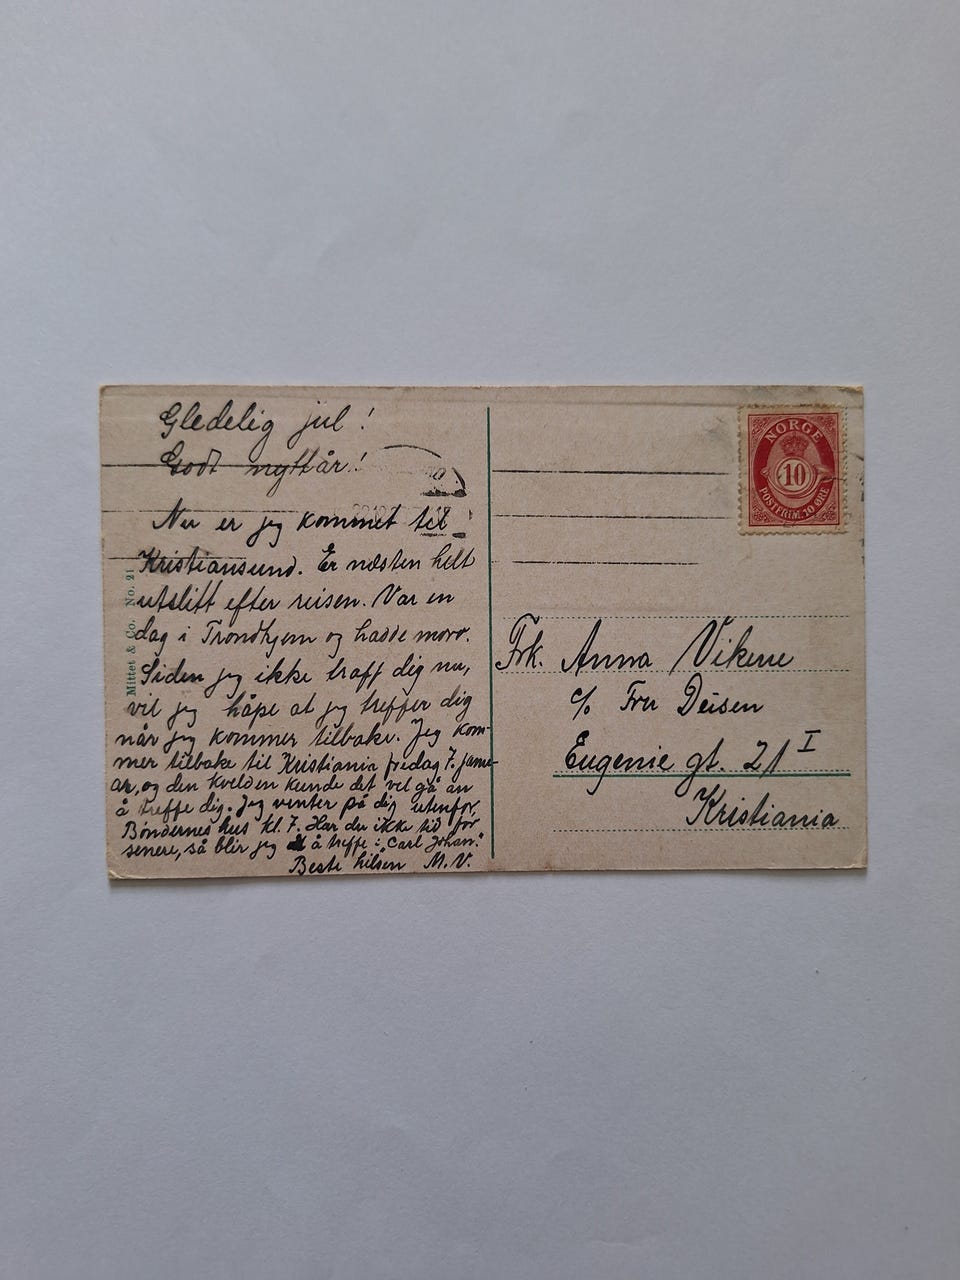 Gledelig jul!
Godt nyttår!
Nu er jeg kommet til
Kristiansund. Er næsten helt
utslitt efter reisen. Var en
dag i Trondhjem og hadde moro.
Siden jeg ikke traff dig nu,
vil jeg håpe at jeg treffer dig
når jeg kommer tilbake. Jeg kom-
mer tilbake til Kristiania fredag 7. janu-
ar, og den kvelden kunde det vel gå an
å treffe dig. Jeg venter på dig utenfor
Bøndernes hus kl. 7. Har du ikke tid før
senere, så blir jeg å treffe i "Carl Johan".
Beste hilsen M.V.
Mittet & Co. No. 21
NORGE
10
POSTFRIM. 10 ØRE
Frk. Anna Vikene
c/o Fru Deisen
Eugenie gt. 21 I
Kristiania